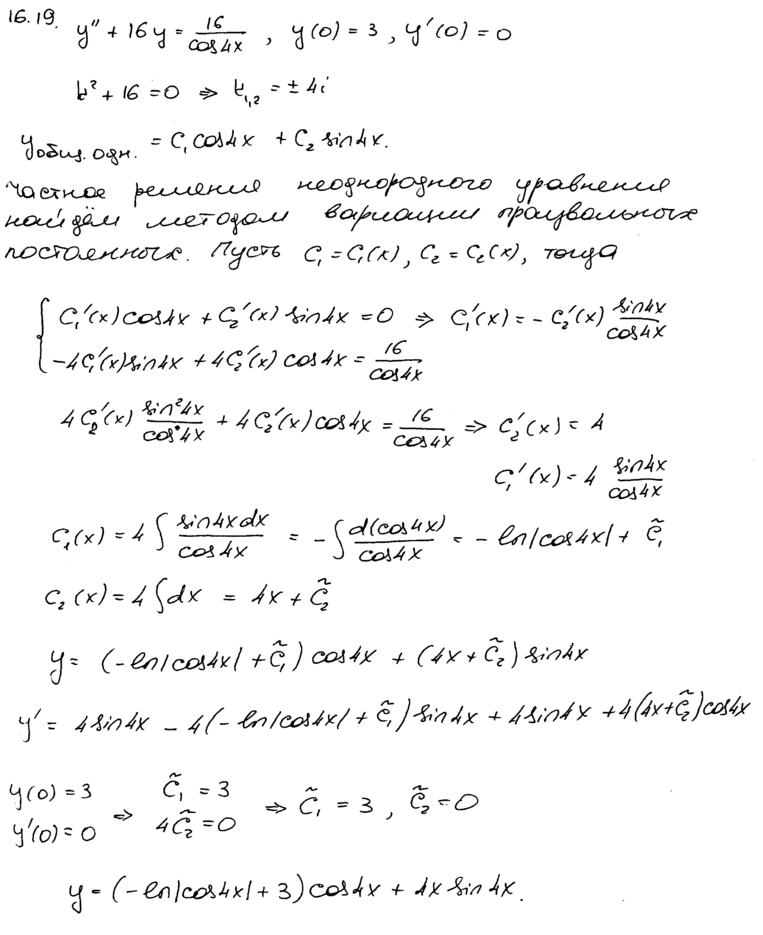 16.19. y'' + 16y = 16/cos4x , y(0) = 3 , y'(0) = 0
k² + 16 = 0 ⇒ k₁,₂ = ± 4i
yобщ. одн. = C₁cos4x + C₂ sin4x.
Частное решение неоднородного уравнения
найдём методом вариации произвольных
постоянных. Пусть C₁ = C₁(x), C₂ = C₂(x), тогда
{ C₁'(x)cos4x + C₂'(x) sin4x = 0 ⇒ C₁'(x) = - C₂'(x) sin4x/cos4x
-4C₁'(x)sin4x + 4C₂'(x) cos4x = 16/cos4x
4C₂'(x) sin²4x/cos4x + 4C₂'(x)cos4x = 16/cos4x ⇒ C₂'(x) = 4
C₁'(x) = 4 sin4x/cos4x
C₁(x) = 4 ∫ sin4xdx/cos4x = - ∫ d(cos4x)/cos4x = - ln|cos4x| + C̃₁
C₂(x) = 4∫dx = 4x + C̃₂
y = (-ln|cos4x| + C̃₁) cos4x + (4x + C̃₂) sin4x
y' = 4sin4x - 4(-ln|cos4x| + C̃₁) sin4x + 4sin4x + 4(4x+C̃₂)cos4x
y(0) = 3 ⇒ C̃₁ = 3 ⇒ C̃₁ = 3 , C̃₂ = 0
y'(0) = 0 4C̃₂ = 0
y = (-ln|cos4x| + 3) cos4x + 4x sin4x.